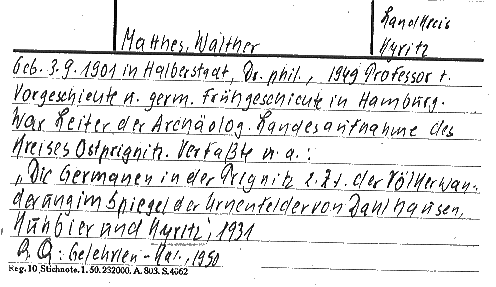 Landkreis
Matthes, Walther Kyritz
Geb. 3.9.1901 in Halberstadt, Dr. phil., 1949 Professor f.
Vorgeschichte u. germ. Frühgeschichte in Hamburg.
War Leiter der Archäolog. Landesaufnahme des
Kreises Ostprignitz. Verfaßte u. a.:
„Die Germanen in der Prignitz z. Zt. der Völkerwan-
derung im Spiegel der Urnenfelder von Dahlhausen,
Kuhbier und Kyritz", 1931
Qu: Gelehrten-Kal., 1950
Reg. 10 Stichnote. 1. 50. 232000. A. 803. S. 4062